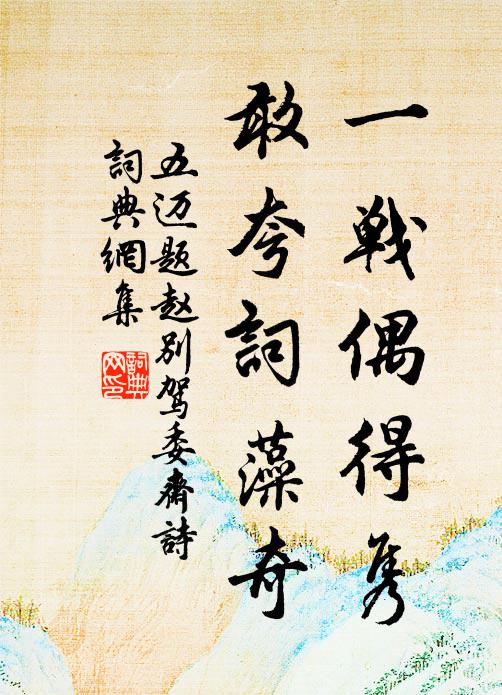 一戰偶得隽
敢夸詞藻奇
五迈题赵别驾委齋詩
詞典網集
詞典網印